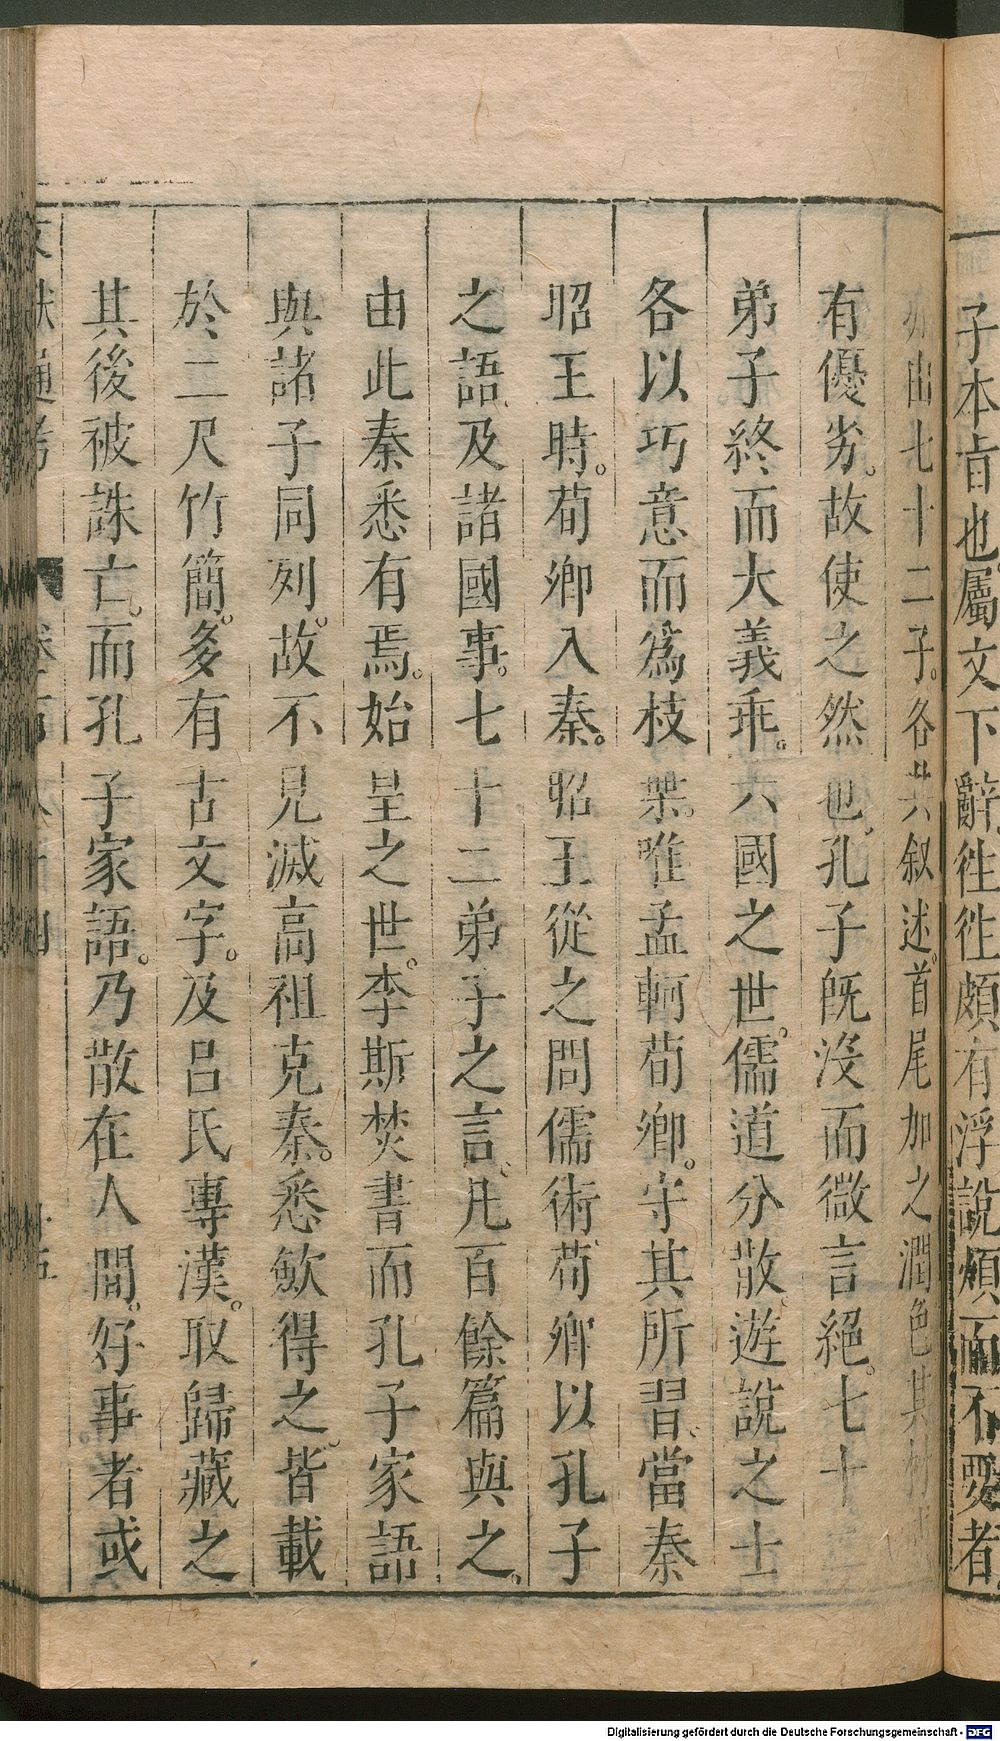 子本旨也屬文下辭徃徃頗有浮說煩而不要者
亦由七十二子各共叙述首尾加之潤色其材
有優劣。故使之然也。孔子旣沒而微言絕。七十二
弟子終而大義乖。六國之世。儒道分散。遊說之士
各以巧意而爲枝葉。唯孟軻荀卿。守其所習。當秦
昭王時。荀卿入秦。昭王從之問儒術荀卿以孔子
之語及諸國事。七十二弟子之言。凡百餘篇與之。
由此秦悉有焉。始皇之世。李斯焚書而孔子家語
與諸子同列。故不見滅高祖克秦。悉斂得之。皆載
於二尺竹簡。多有古文字。及呂氏專漢。取歸藏之
其後被誅亡。而孔子家語。乃散在人間。好事者或
文獻通考
Digitalisierung gefördert durch die Deutsche Forschungsgemeinschaft - DFG